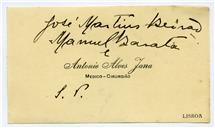 José Martins Beirão
Manuel Barata
E
Antonio Alves Jana
MEDICO-CIRURGIÃO
S. P.
LISBOA